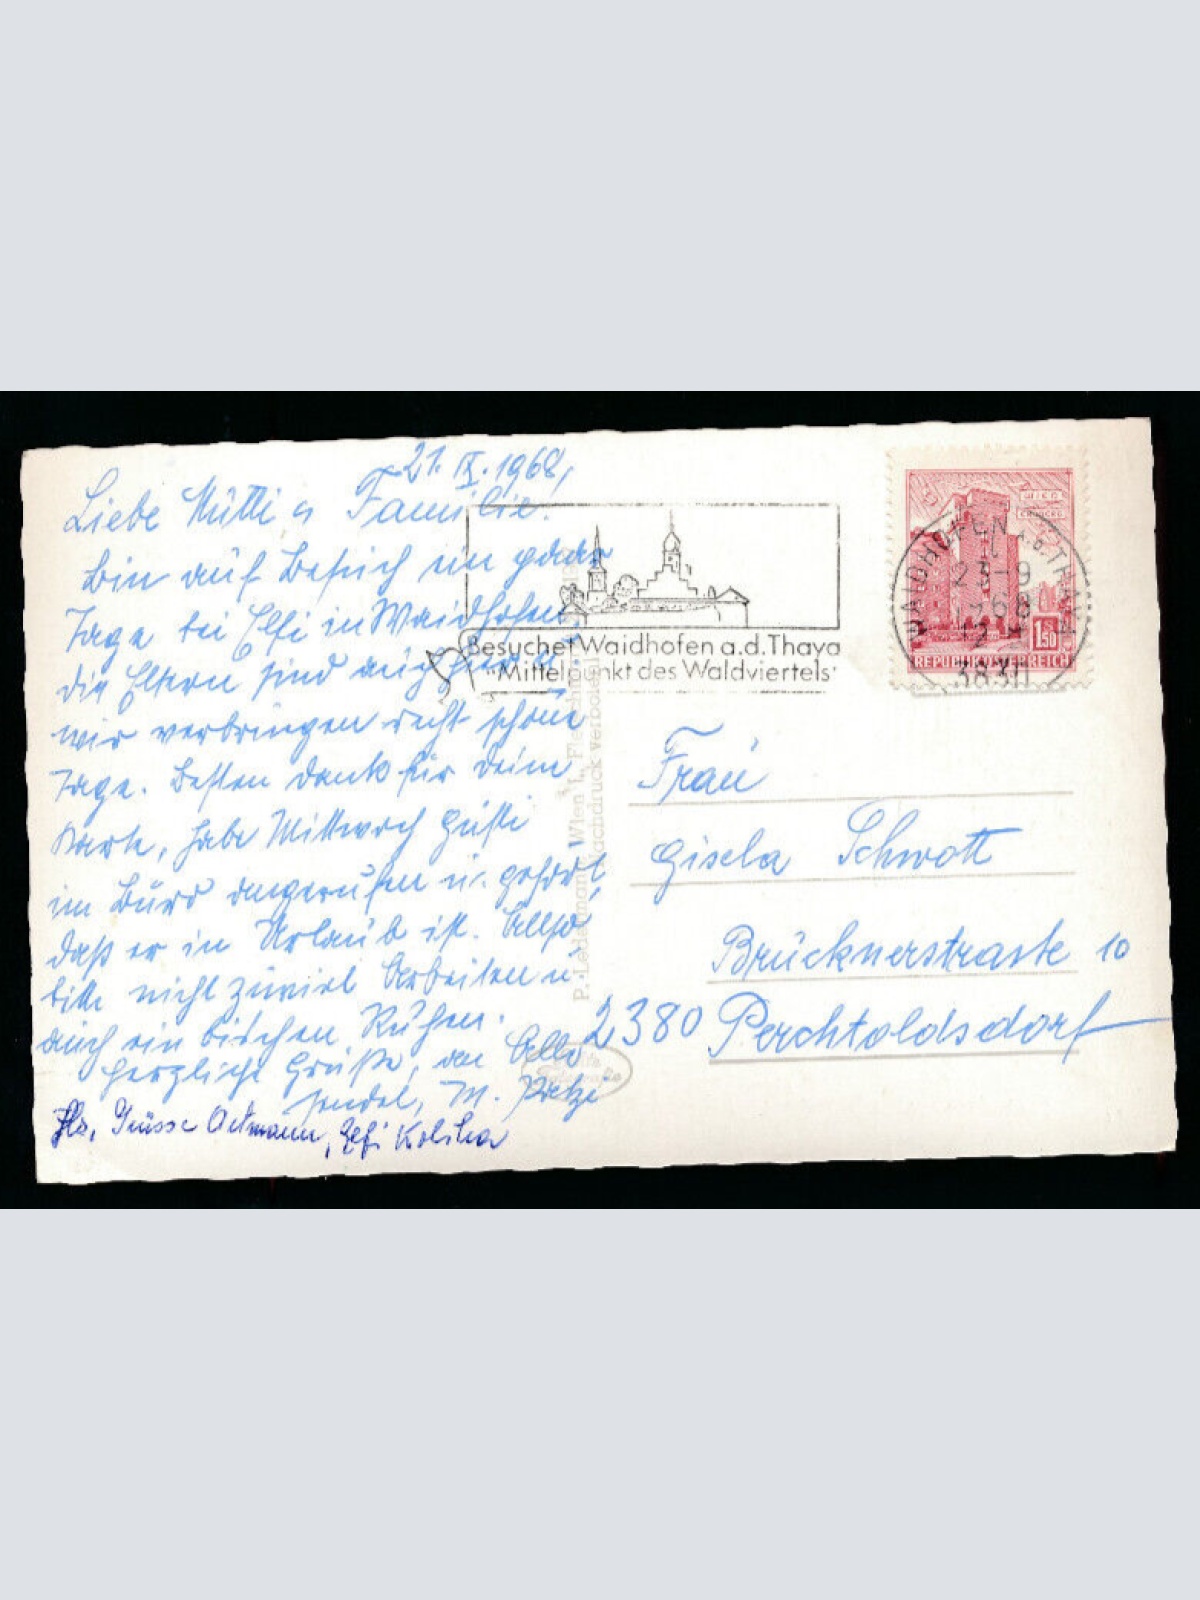 21. IX. 1968,
Liebe Mutti u Familie!
bin auf Besuch ein paar
Tage bei Elfi in Waidhofen
die Eltern sind auch hier u
wir verbringen recht schöne
Tage. Besten Dank für Deine
Karte, habe Mittwoch Gusti
im Büro angerufen u. gehört,
daß er in Urlaub ist. Also
bitte nicht zuviel Arbeiten u
auch ein bischen Ruhen.
herzliche Grüße, an Alle
sendet, M.
Hz. Grüsse
Besuchet Waidhofen a.d. Thaya
"Mittelpunkt des Waldviertels"
WAIDHOFEN A.D. THAYA
23-9
1968-12
3830
WIEN
ERDBERG
1.50
REPUBLIK ÖSTERREICH
P. Ledermann, Wien I.,
Nachdruck verboten
Frau
Gisela Schwott
Brücknerstraste 10
2380 Perchtoldsdorf